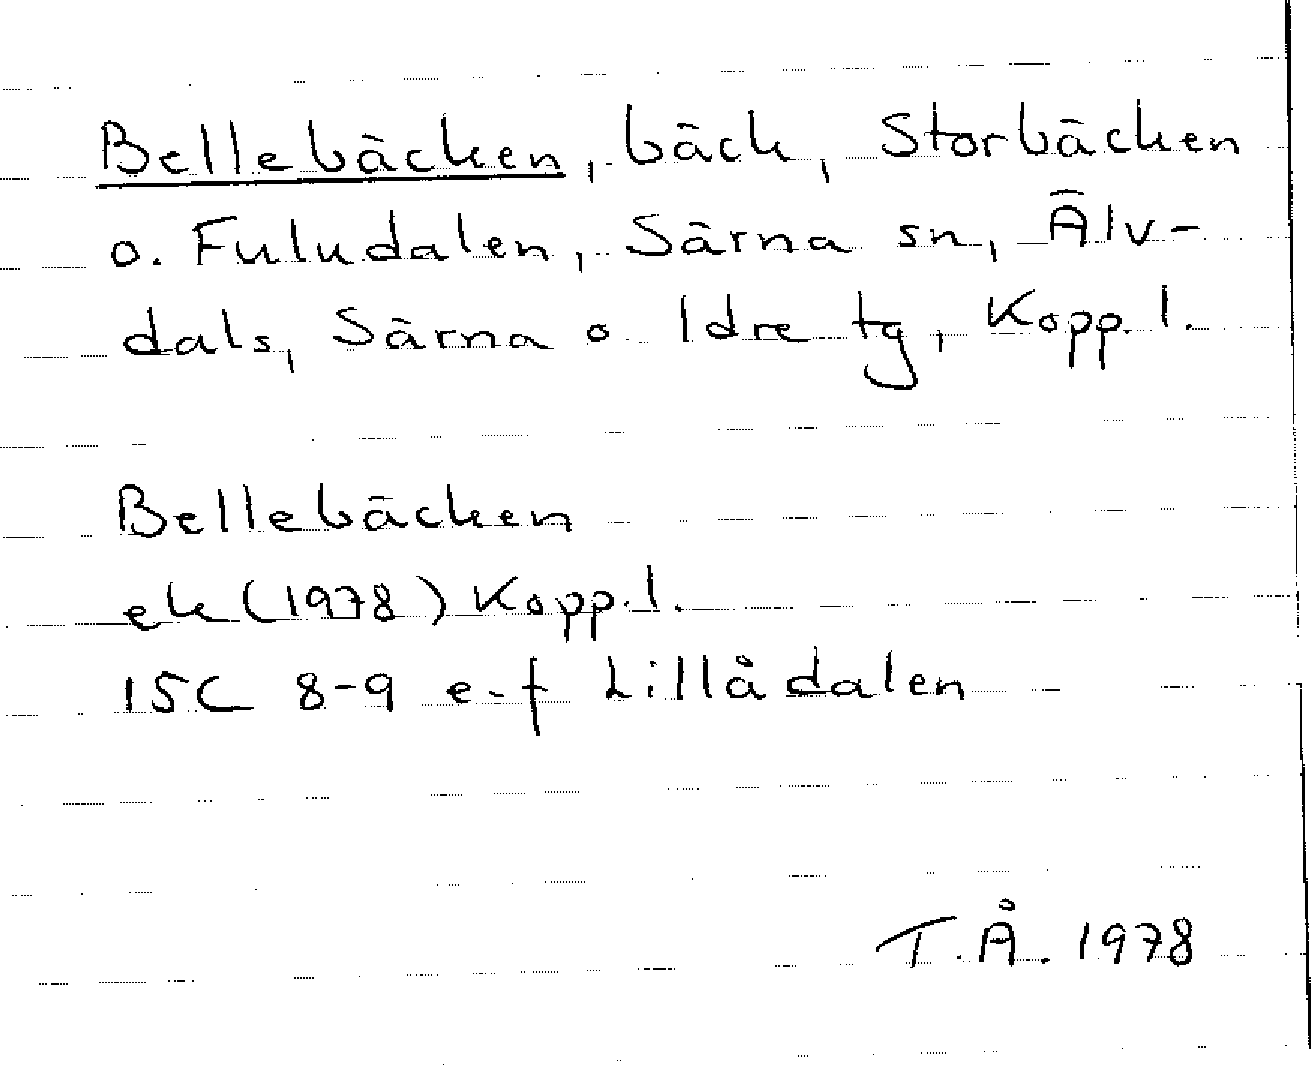 Bellebäcken, bäck, Storbäcken
o. Fuludalen, Särna sn, Älv-
dals, Särna o Idre tg, Kopp. l.
Bellebäcken
ek (1978) Kopp. l.
15C 8-9 e-f Lillådalen
T.Å. 1978